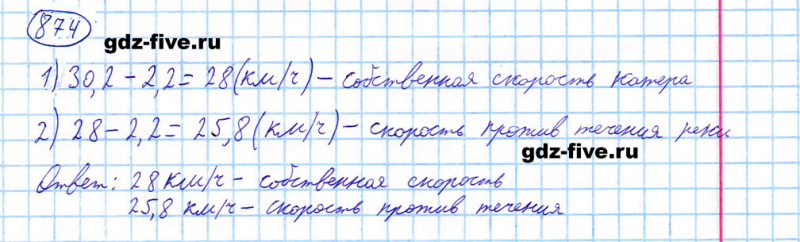 874
gdz-five.ru
1) 30,2 - 2,2 = 28 (км/ч) - собственная скорость катера
2) 28 - 2,2 = 25,8 (км/ч) - скорость против течения реки
gdz-five.ru
Ответ: 28 км/ч - собственная скорость
25,8 км/ч - скорость против течения